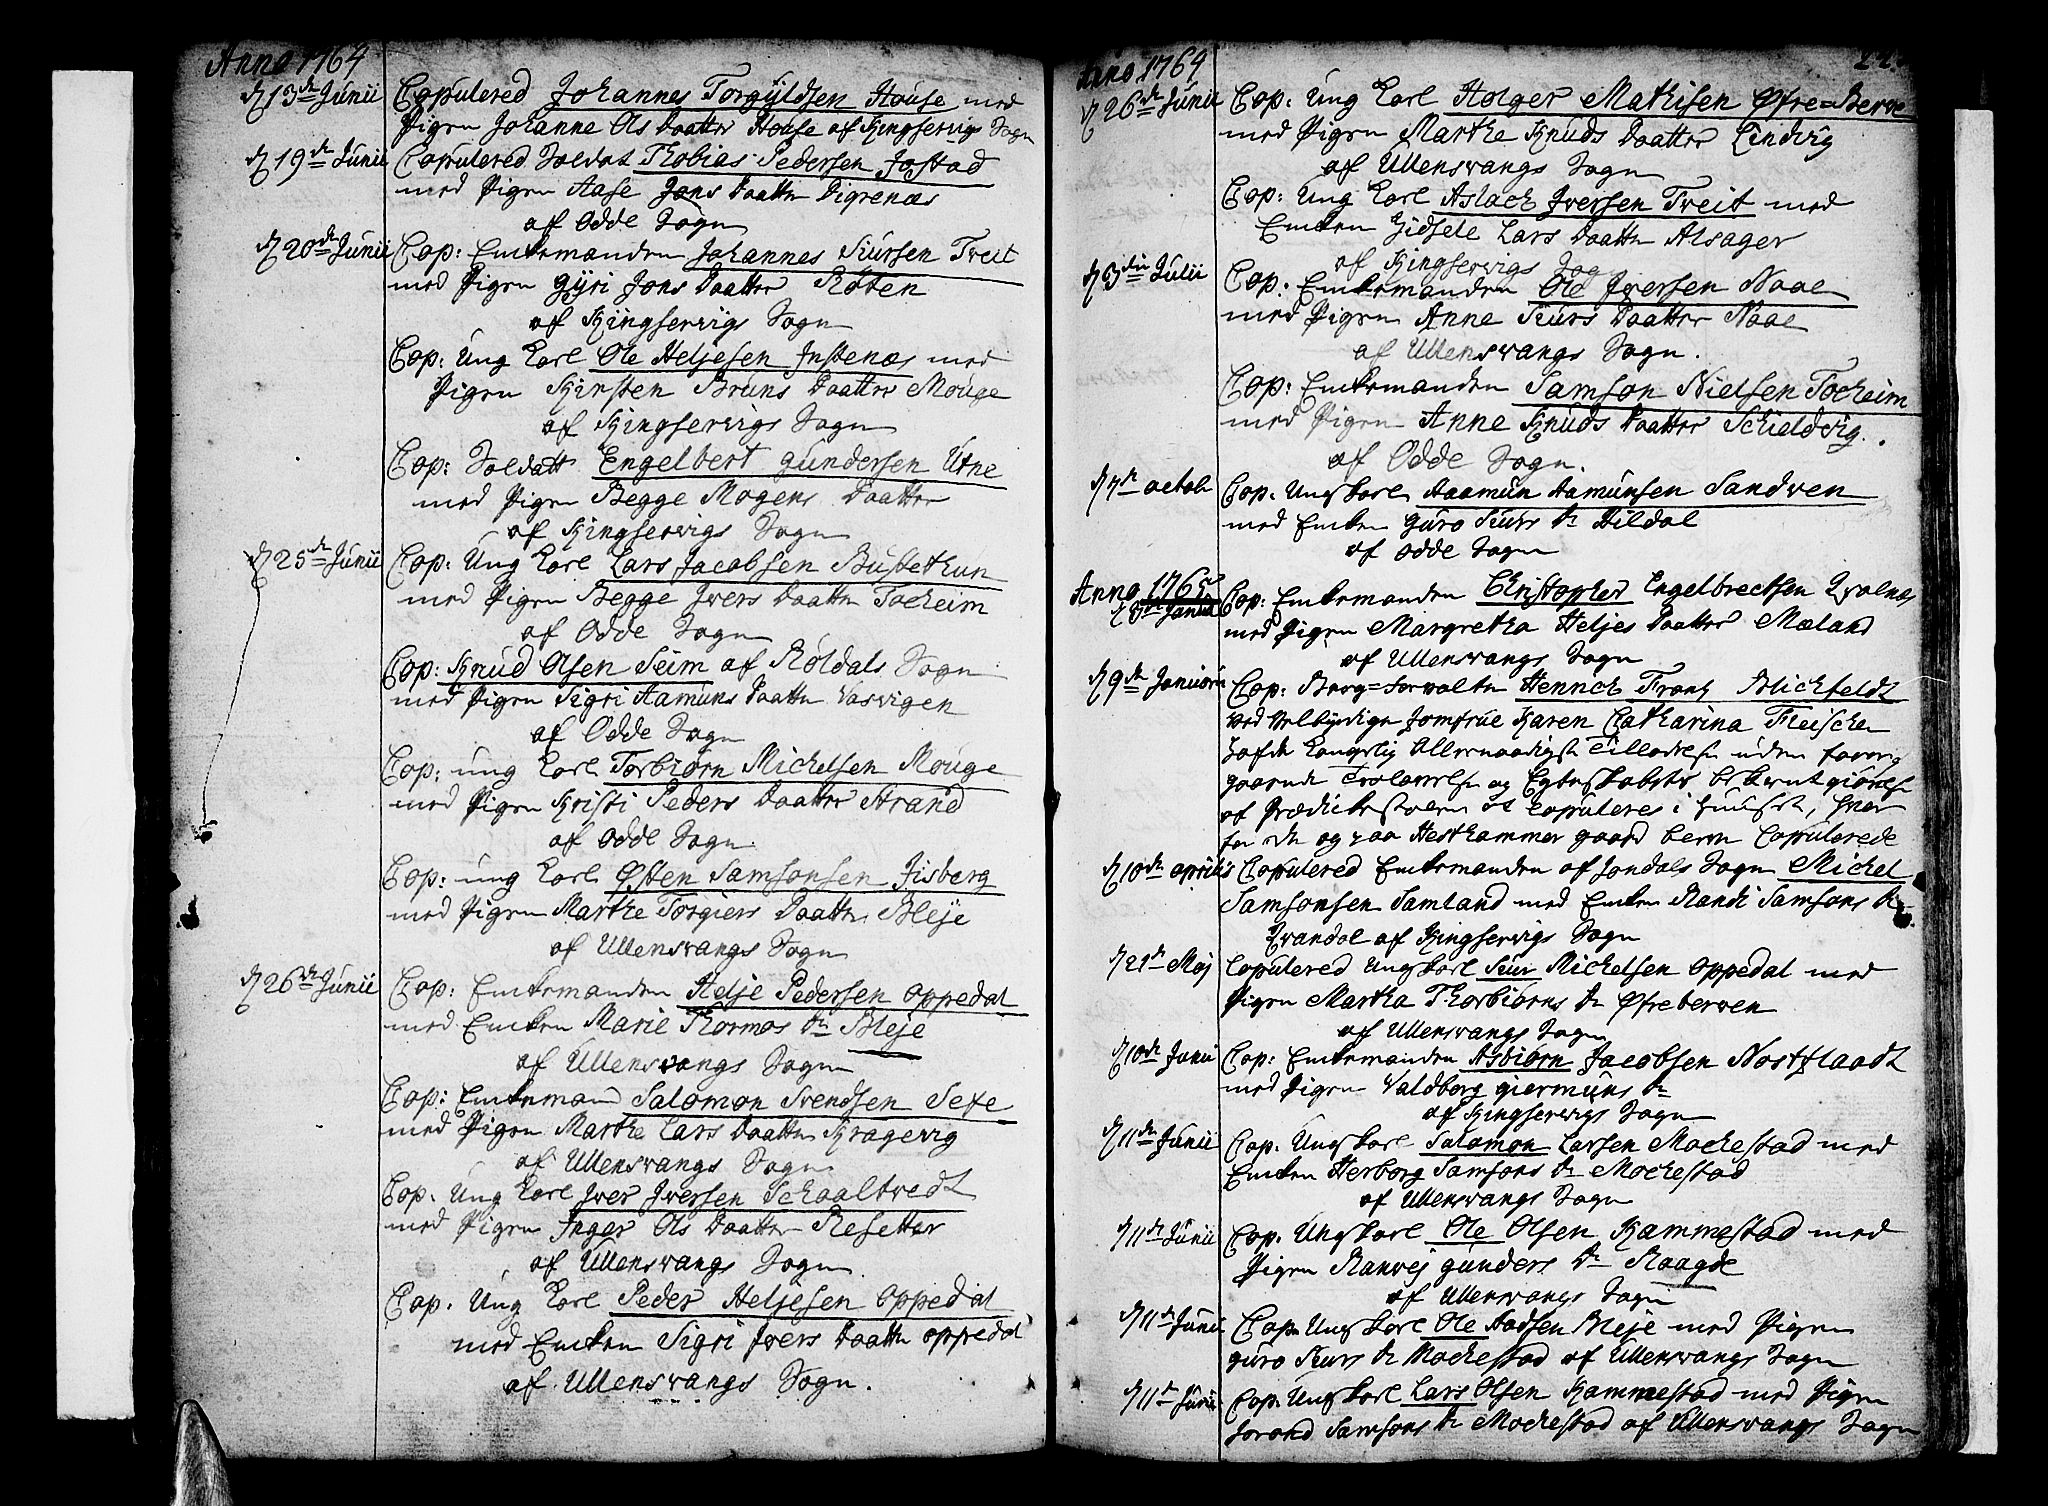 Anno 1764
d 13de Junii Copulered Johannes Torgüldsen House med
Pigen Johanne Ols Daatter House af Kingservigs Sogn
d 19de Junii Copulered Soldat Thobias Pedersen Jostad
med Pigen Aase Jons Daatter Digrenæs
af Odde Sogn
d 20de Junii Cop: Enkemanden Johannes Siursen Treit
med Pigen Gÿri Jons Daatter Røten
af Kingservigs Sogn
Cop: Ung Karl Ole Heljesen Instenæs med
Pigen Kirsten Bruns Daatter Mouge
af Kingservigs Sogn
Cop: Soldatt Engelbert Gundersen Utne
med Pigen Begge Mogens Daatter
af Kingservigs Sogn
d 25de Junii Cop: Ung Karl Lars Jacobsen Bustethun
med Pigen Begge Ivers Daatter Tocheim
af Odde Sogn
Cop: Knud Olsen Seim af Røldals Sogn
med Pigen Sigri Aamuns Daatter Vasvigen
af Odde Sogn
Cop: ung Karl Torbiørn Michelsen Mouge
med Pigen Kristi Peders Daatter Strand
af Odde Sogn
Cop: ung Karl Østen Samsonsen Jisberg
med Pigen Marthe Torgiers Daatter Bleje
af Ullensvangs Sogn
d 26de Junii Cop: Enkemanden Helje Pedersen Oppedal
med Enken Marie Thormos Dr Bleje
af Ullensvangs Sogn
Cop: Enkemand Salomon Svendsen Sexe
med Pigen Marthe Lars Daatter Kragevig
af Ullensvangs Sogn
Cop. Ung Karl Iver Iversen Schaaltvedt
med Pigen Inger Ols Daatter Resetter
af Ullensvangs Sogn
Cop. Ung Karl Peder Heljesen Oppedal
med Enken Sigri Ivers Daatter Oppedal
af Ullensvangs Sogn.
Anno 1764
d 26de Junii Cop: Ung Karl Holger Mathisen Øfre=Berve
med Pigen Marthe Knuds Daatter Lindvig
af Ullensvangs Sogn
Cop: Ung Karl Aslach Iversen Treit med
Enken Gidsele Lars Daatter Alsager
af Kingservigs Sogn
d 3die Julii Cop: Enkemanden Ole Iversen Naae
med Pigen Anne Siurs Daatter Naae
af Ullensvangs Sogn.
Cop: Enkemanden Samson Nielsen Tocheim
med Pigen Anne Knuds Daatter Schieldvig.
af Odde Sogn.
d 7de octob Cop. Ungkarl Aaamun Aamunsen Sandven
med Enken Guro Siurs Dr Hildal
af Odde Sogn
Anno 1765
Cop: Enkemanden Christopher Engelbrechtsen Qvalnæs
med Pigen Margretha Heljes Daatter Mæland
af Ullensvangs Sogn
d 9de Januarii Cop: Berg=Forvalter Henrich Frantz Blichfeldt
Velbyrdige Jomfrue Karen Catharina Fleischer
Kongelig Allernaadigst Tilladelse uden
gaaende Trolovelse og Egteskabets bekientgiørelse
af Prædickestolen at Copuleres i Huuset, hvor
for de og paa Hesthammer gaard bleve Copulerede
d 10de aprilis Copulered Enkemanden af Jondals Sogn Michel
Samsonsen Samland med Enken Randi Samsons Dr
Qvandal af Kingservigs Sogn
d 21de Maj Copulered Ungkarl Siur Michelsen Oppedal med
Pigen Martha Thorbiørns Dr Øfreberven
af Ullensvangs Sogn
d 10de Junii Cop: Enkemanden Asbiørn Jacobsen Nostflaadt
med Pigen Valdborg Giermuns Dr
af Kingservigs Sogn
d 11de Junii Cop. Ungkarl Salomon Larsen Mochestad med
Enken Herborg Samsons Dr Mochestad
af Ullensvangs Sogn
d 11de Junii Cop. Ungkarl Ole Olsen Hammestad med
Pigen Ranvej Gunders Dr Raagde
af Ullensvangs Sogn
d 11de Junii Cop. Ungkarl Ole Aadsen Bleje med Pigen
Guro Siurs Dr Mochestad af Ullensvangs Sogn
d 11de Junii Cop. Ungkarl Lars Olsen Hammestad med Pigen
Jorand Samsons Dr Mochestad af Ullensvangs Sogn